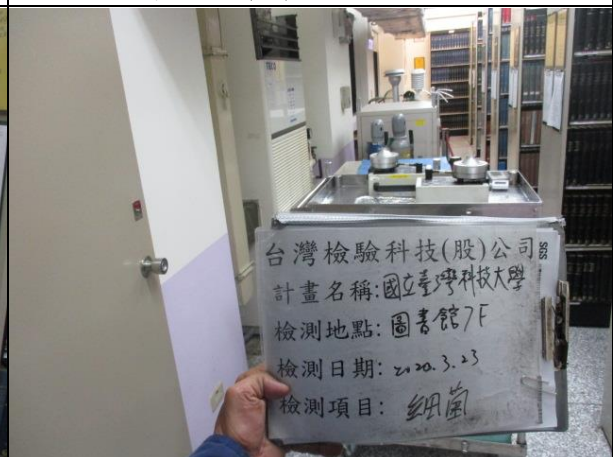 台灣檢驗科技(股)公司
SGS
計畫名稱:國立臺灣科技大學
檢測地點:圖書館7F
檢測日期:2020.3.23
檢測項目:細菌